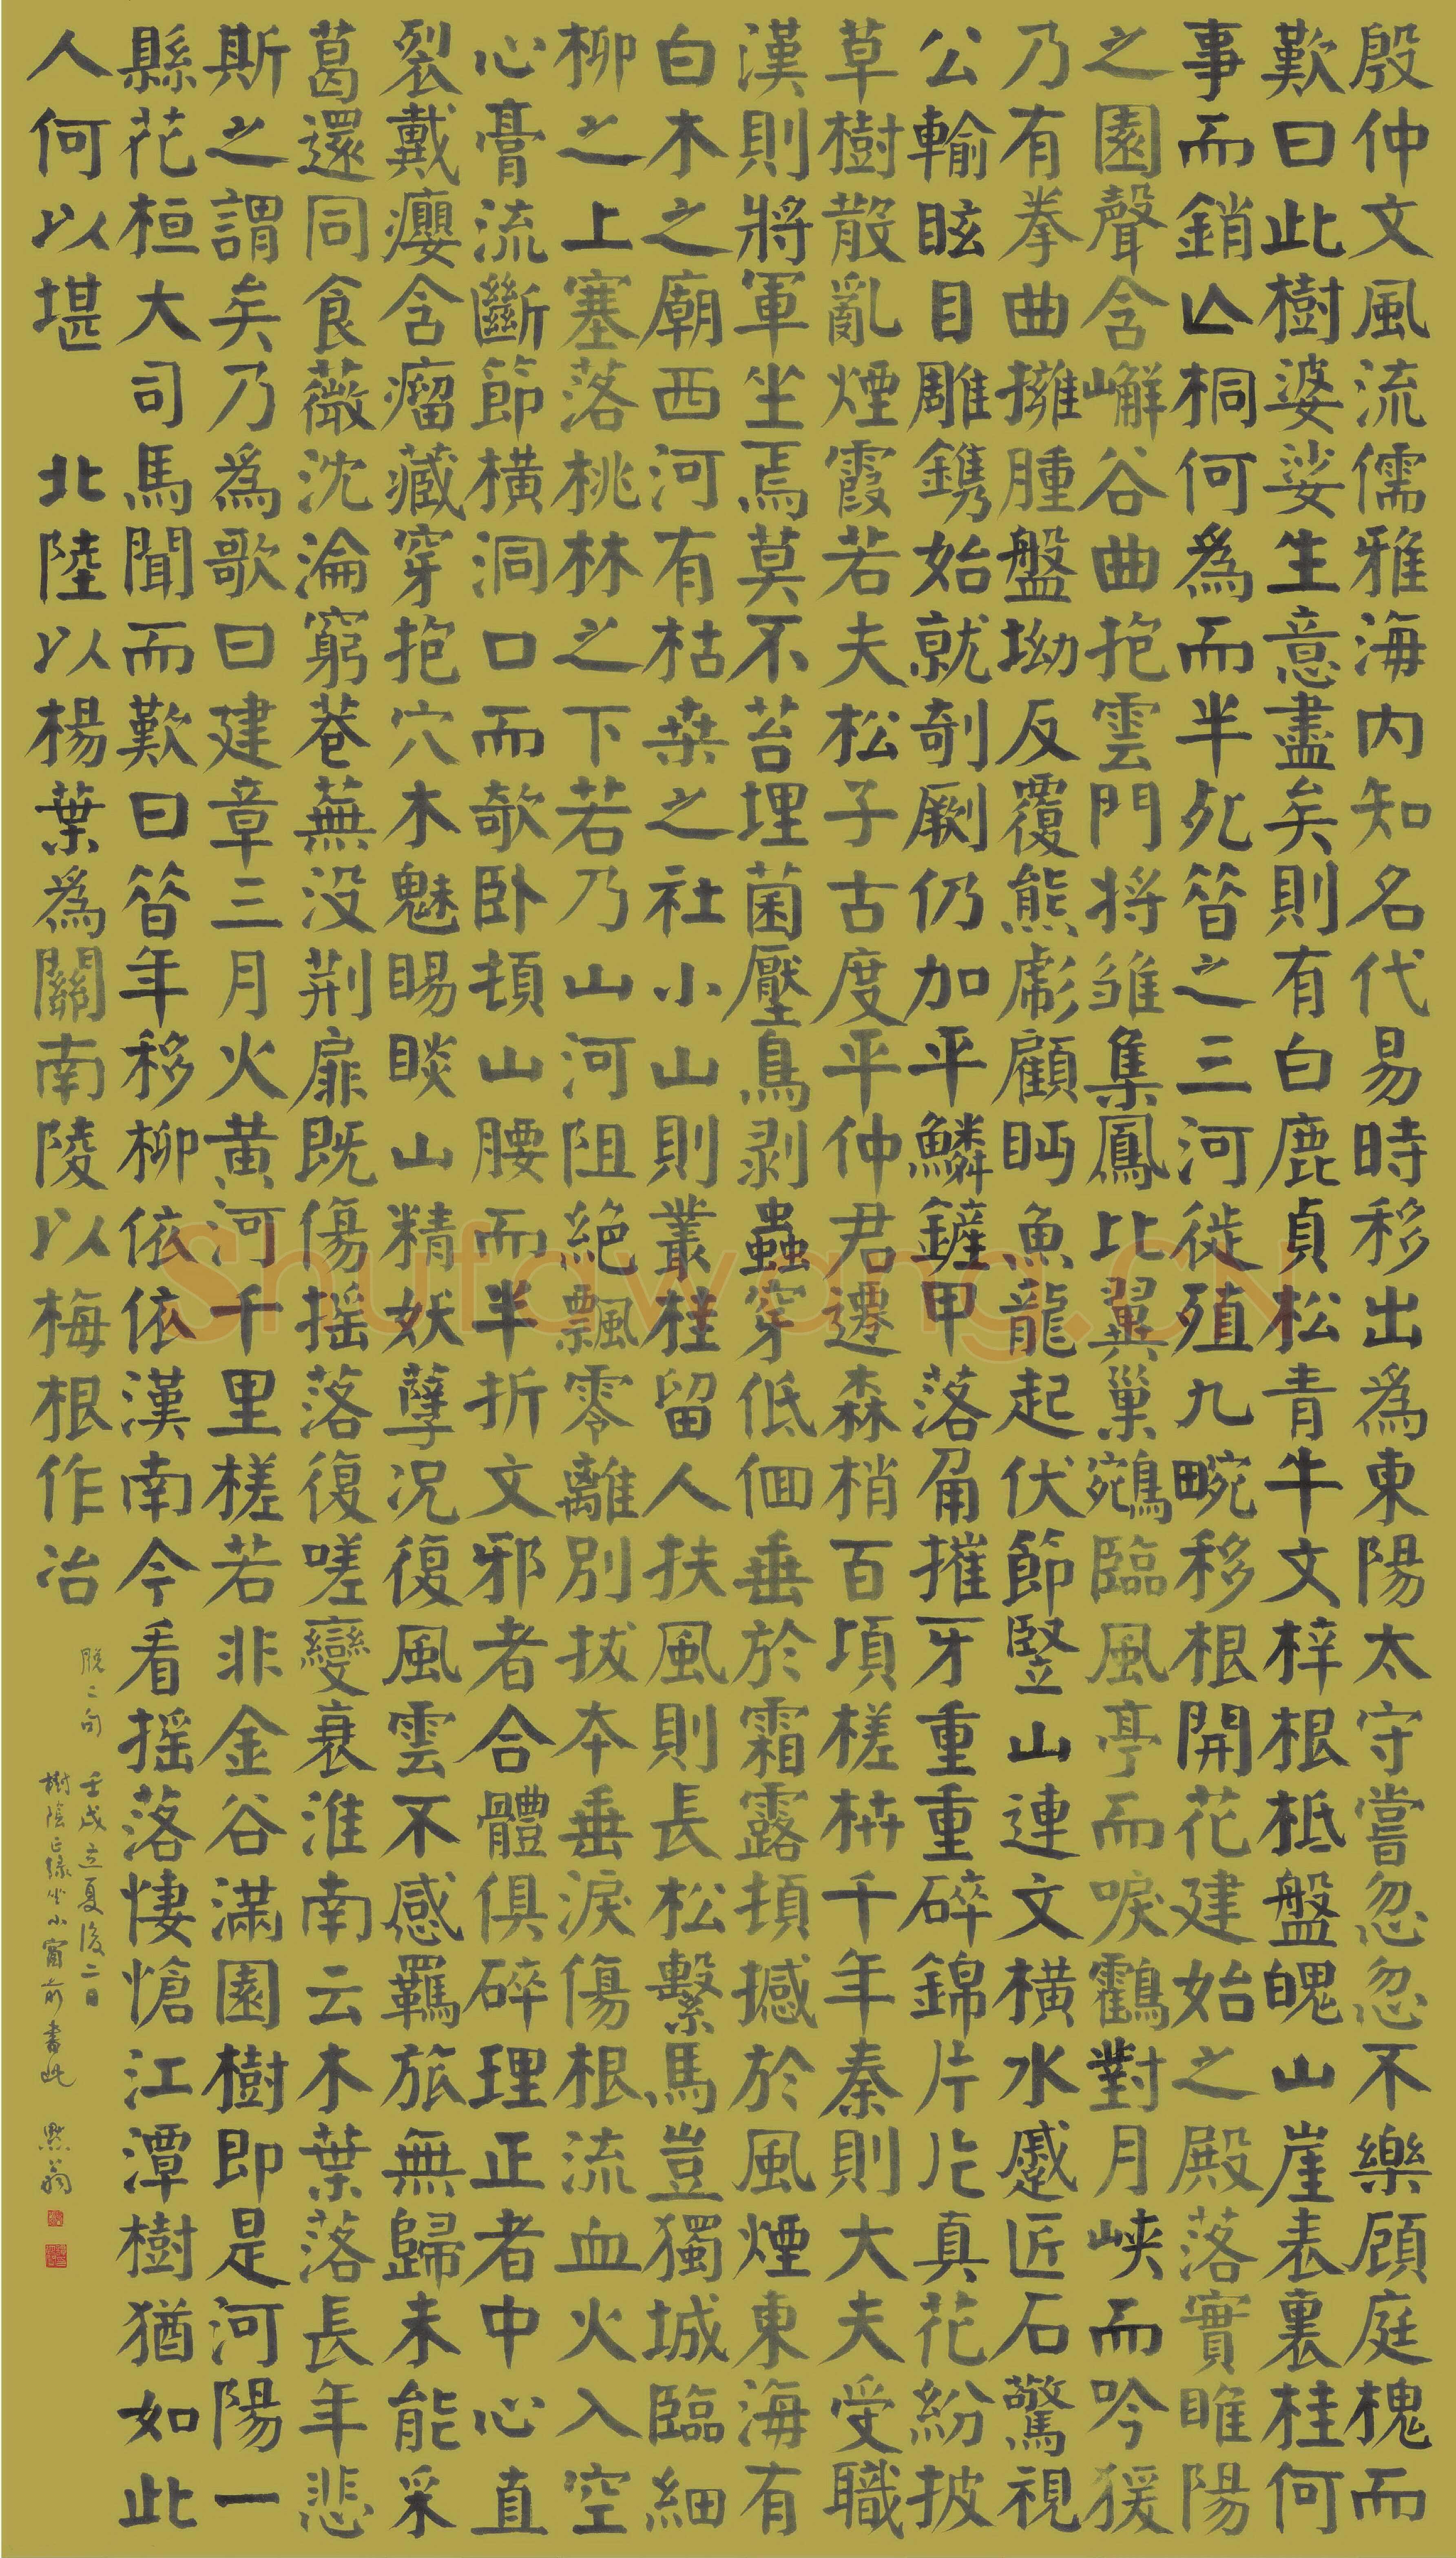 殷仲文風流儒雅海内知名代易時移出為東陽太守嘗忽忽不樂顧庭槐而
歎曰此樹婆娑生意盡矣則有白鹿貞松青牛文梓根柢盤魄山崖表裏桂何
事而銷亡桐何為而半死昔之三河徙殖九畹移根開花建始之殿落實睢陽
之園聲含嶰谷曲抱雲門将雏集鳳比翼巢鵷臨風亭而唳鶴對月峽而吟猨
乃有拳曲擁腫盤坳反覆熊彪顧眄魚龍起伏節竪山連文横水蹙匠石驚視
公輸眩目雕鐫始就剞劂仍加平鱗鏟甲落角摧牙重重碎錦片片真花紛披
草樹散亂煙霞若夫松子古度平仲君遷森梢百頃槎枿千年秦則大夫受職
漢則將軍坐焉莫不苔埋菌壓鳥剥蟲穿低佪垂於霜露頓撼於風煙東海有
白木之廟西河有枯桒之社小山則叢桂留人扶風則長松繫馬豈獨城臨細
柳之上塞落桃林之下若乃山河阻絶飄零離別拔本垂淚傷根流血火入空
心膏流斷節横洞口而欹卧頓山腰而半折文邪者合體俱碎理正者中心直
裂戴癭含瘤藏穿抱穴木魅賜睒山精妖孽况復風雲不感羈旅無歸未能采
葛還同食薇沈淪窮巷蕪没荆扉既傷摇落復嗟變衰淮南云木葉落長年悲
斯之謂矣乃為歌曰建章三月火黄河千里槎若非金谷滿園樹即是河陽一
縣花桓大司馬聞而歎曰昔年移柳依依漢南今看摇落悽愴江潭樹猶如此
人何以堪 北陸以楊葉為關南陵以梅根作冶
脱二句
壬戌立夏後二日
樹陰正緑坐小窗前書此 默翁
Shufawang.CN